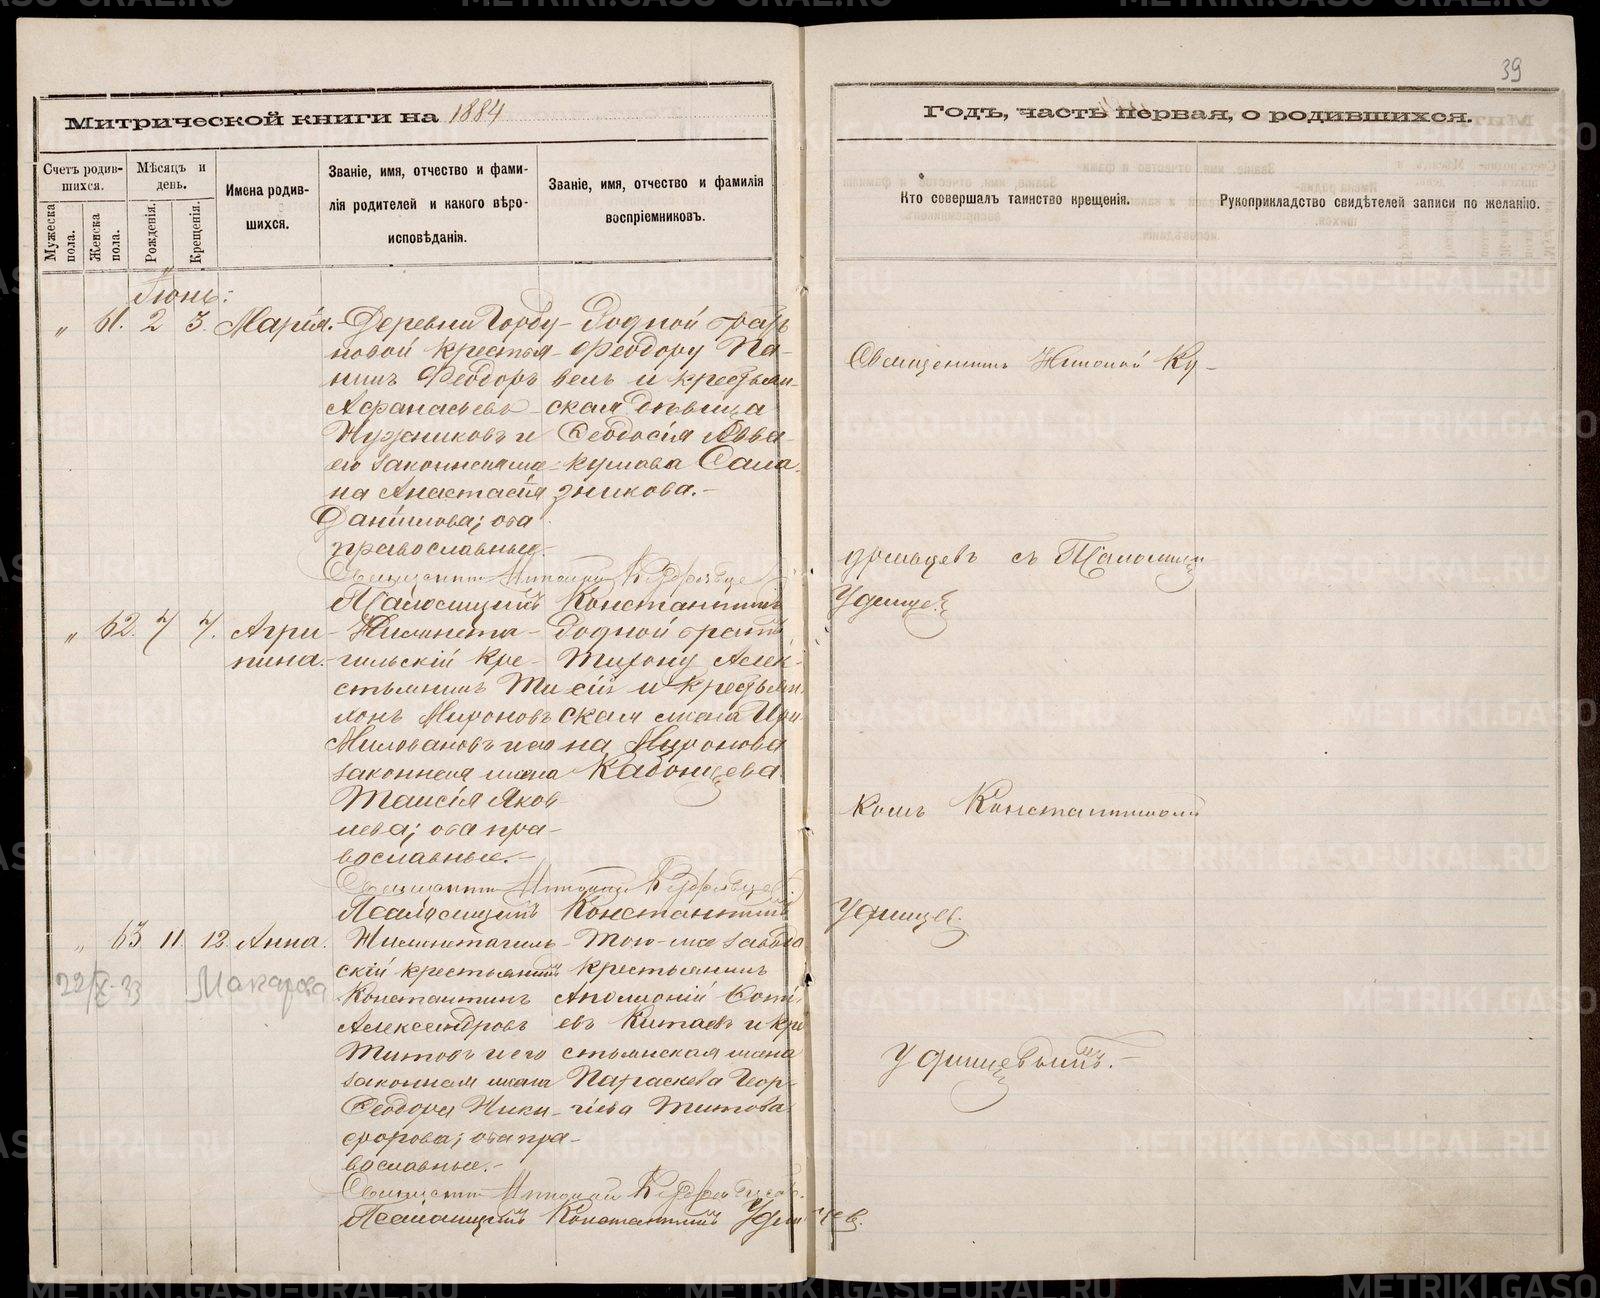 39
Митрической книги на 1884
Годъ, часть первая, о родившихся.
Счетъ родив-
шихся.
Мужеска пола.
Женска пола.
Мѣсяцъ и
день.
Рожденія.
Крещенія.
Имена родив-
шихся.
Званіе, имя, отчество и фами-
лія родителей и какого вѣро-
исповѣданія.
Званіе, имя, отчество и фамилія
воспріемниковъ.
Кто совершалъ таинство крещенія.
Рукоприкладство свидѣтелей записи по желанію.
Іюнь:
„ 61. 2 3. Марія.
Деревни Горбу-
новой крестья-
нинъ Феодоръ
Афанасьевъ
Нужниковъ и
его законная же-
на Анастасія
Даніилова; оба
православные.
Родной братъ
Феодору Па-
велъ и крестьян-
ская дѣвица
Феодосія Авва-
кумова
Священникъ
Псаломщикъ Константинъ Удинцев
„ 62. 7 7. Агри-
пина.
Нижнета-
гильскій кре-
стьянинъ
Мироновъ
Миловановъ и его
законная жена
Таисія Яков-
лева; оба пра-
вославные.
Родной братъ
Алек-
сій и крестьян-
ская жена Ири-
на Миронова
Священникъ
Псаломщикъ Константинъ Удинцев.
„ 63 11. 12. Анна.
22/X-33 Макарова
Нижнетагиль-
скій крестьянинъ
Константинъ
Александровъ
Титовъ и его
законная жена
Феодора Ники-
форова; оба пра-
вославные.
Того-же завода
крестьянинъ
Аполлоній
евъ Китаевъ и кре-
стьянская жена
Параскева Геор-
гіева Титова
Священникъ
Псаломщикъ Константинъ Удинцев.
Священникъ Ку-
съ Псаломщи-
комъ Константиномъ
Удинцевымъ.
METRIKI.GASO-URAL.RU